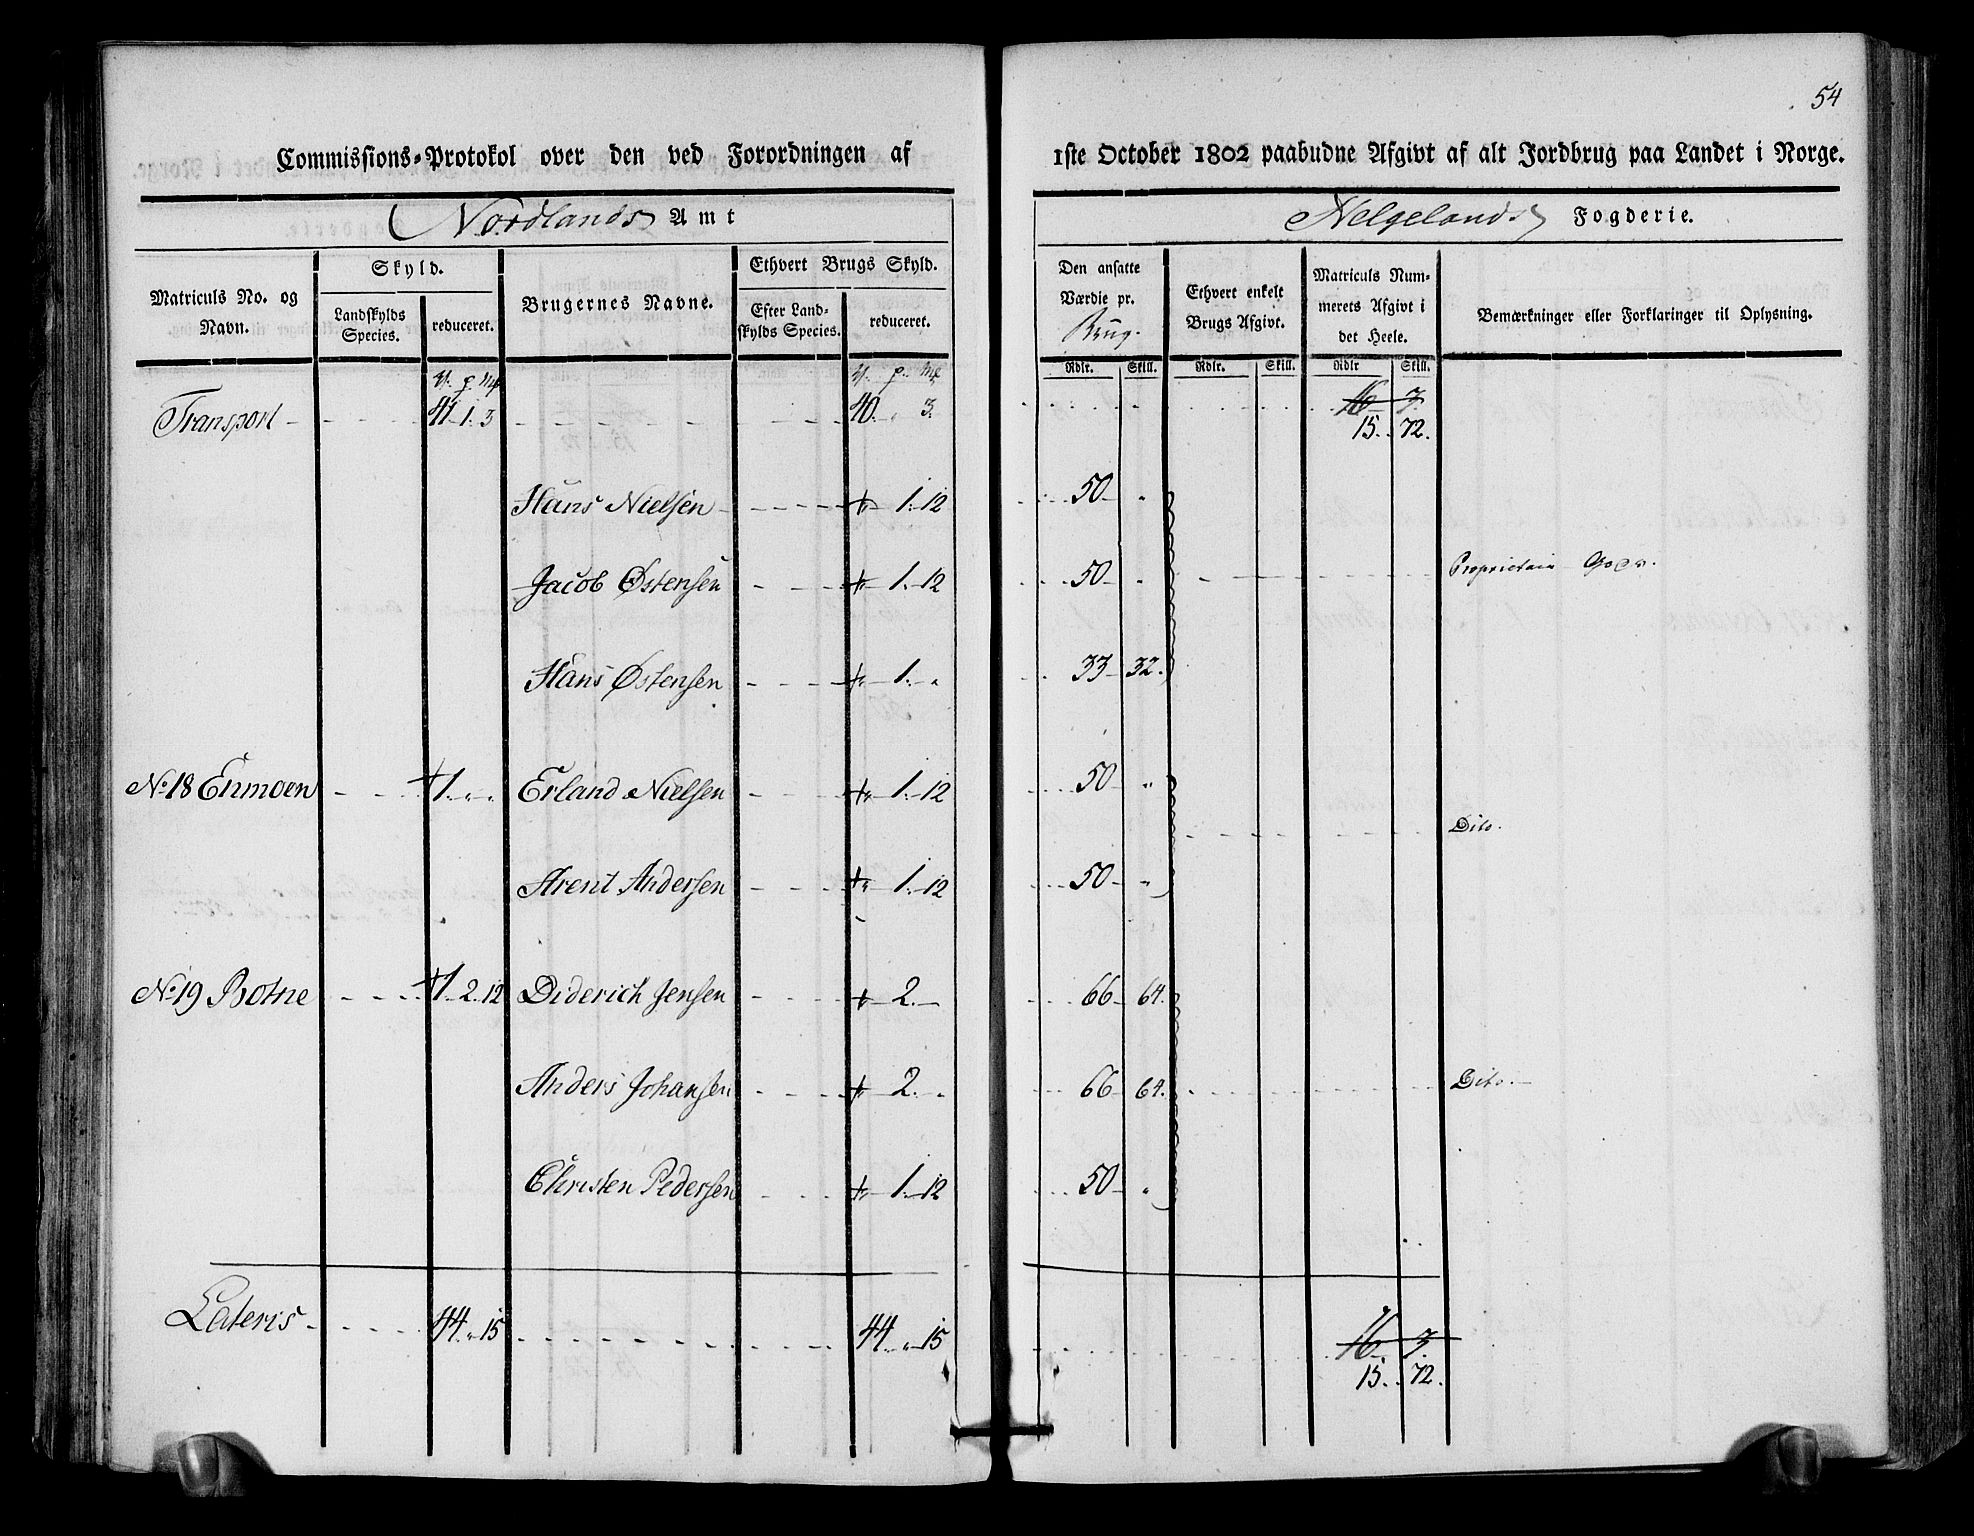 54
Commissions-Protokol over den ved Forordningen af 1ste October 1802 paabudne Afgivt af alt Jordbrug paa Landet i Norge.
Nordlands Amt Helgelands Fogderie.
Matriculs No. og Navn.
Skyld.
Landskylds Species.
reduceret.
Brugernes Navne.
Ethvert Brugs Skyld.
Efter Landskylds Species.
reduceret.
Den ansatte Værdie pr. Brug.
Ethvert enkelt Brugs Afgivt.
Matriculs Nummerets Afgivt i det Heele.
Bemærkninger eller Forklaringer til Oplysning.
Rdlr. Skill. Rdlr. Skill. Rdlr Skill.
V. p. M V. p. M
Transport 41. 1. 3 40. „ 3. 16 7.
15. 72.
Hans Nielsen „ 1. 12 50 „
Jacob Østensen „ 1. 12 50 „ Proprietair Gods.
Hans Østensen „ 1. „ 33 32.
No. 18 Enmoen 1. „ „ Erland Nielsen „ 1. 12 50 „
Dito.
Arent Andersen „ 1. 12 50 „
No. 19 Botne 1. 2. 12 Diderich Jensen „ 2. 66 64.
Anders Johansen „ 2. „ 66 64. Dito.
Christen Pedersen „ 1. 12 50 „
Lateris 44. „ 15 44. „ 15 16 7.
15. 72.